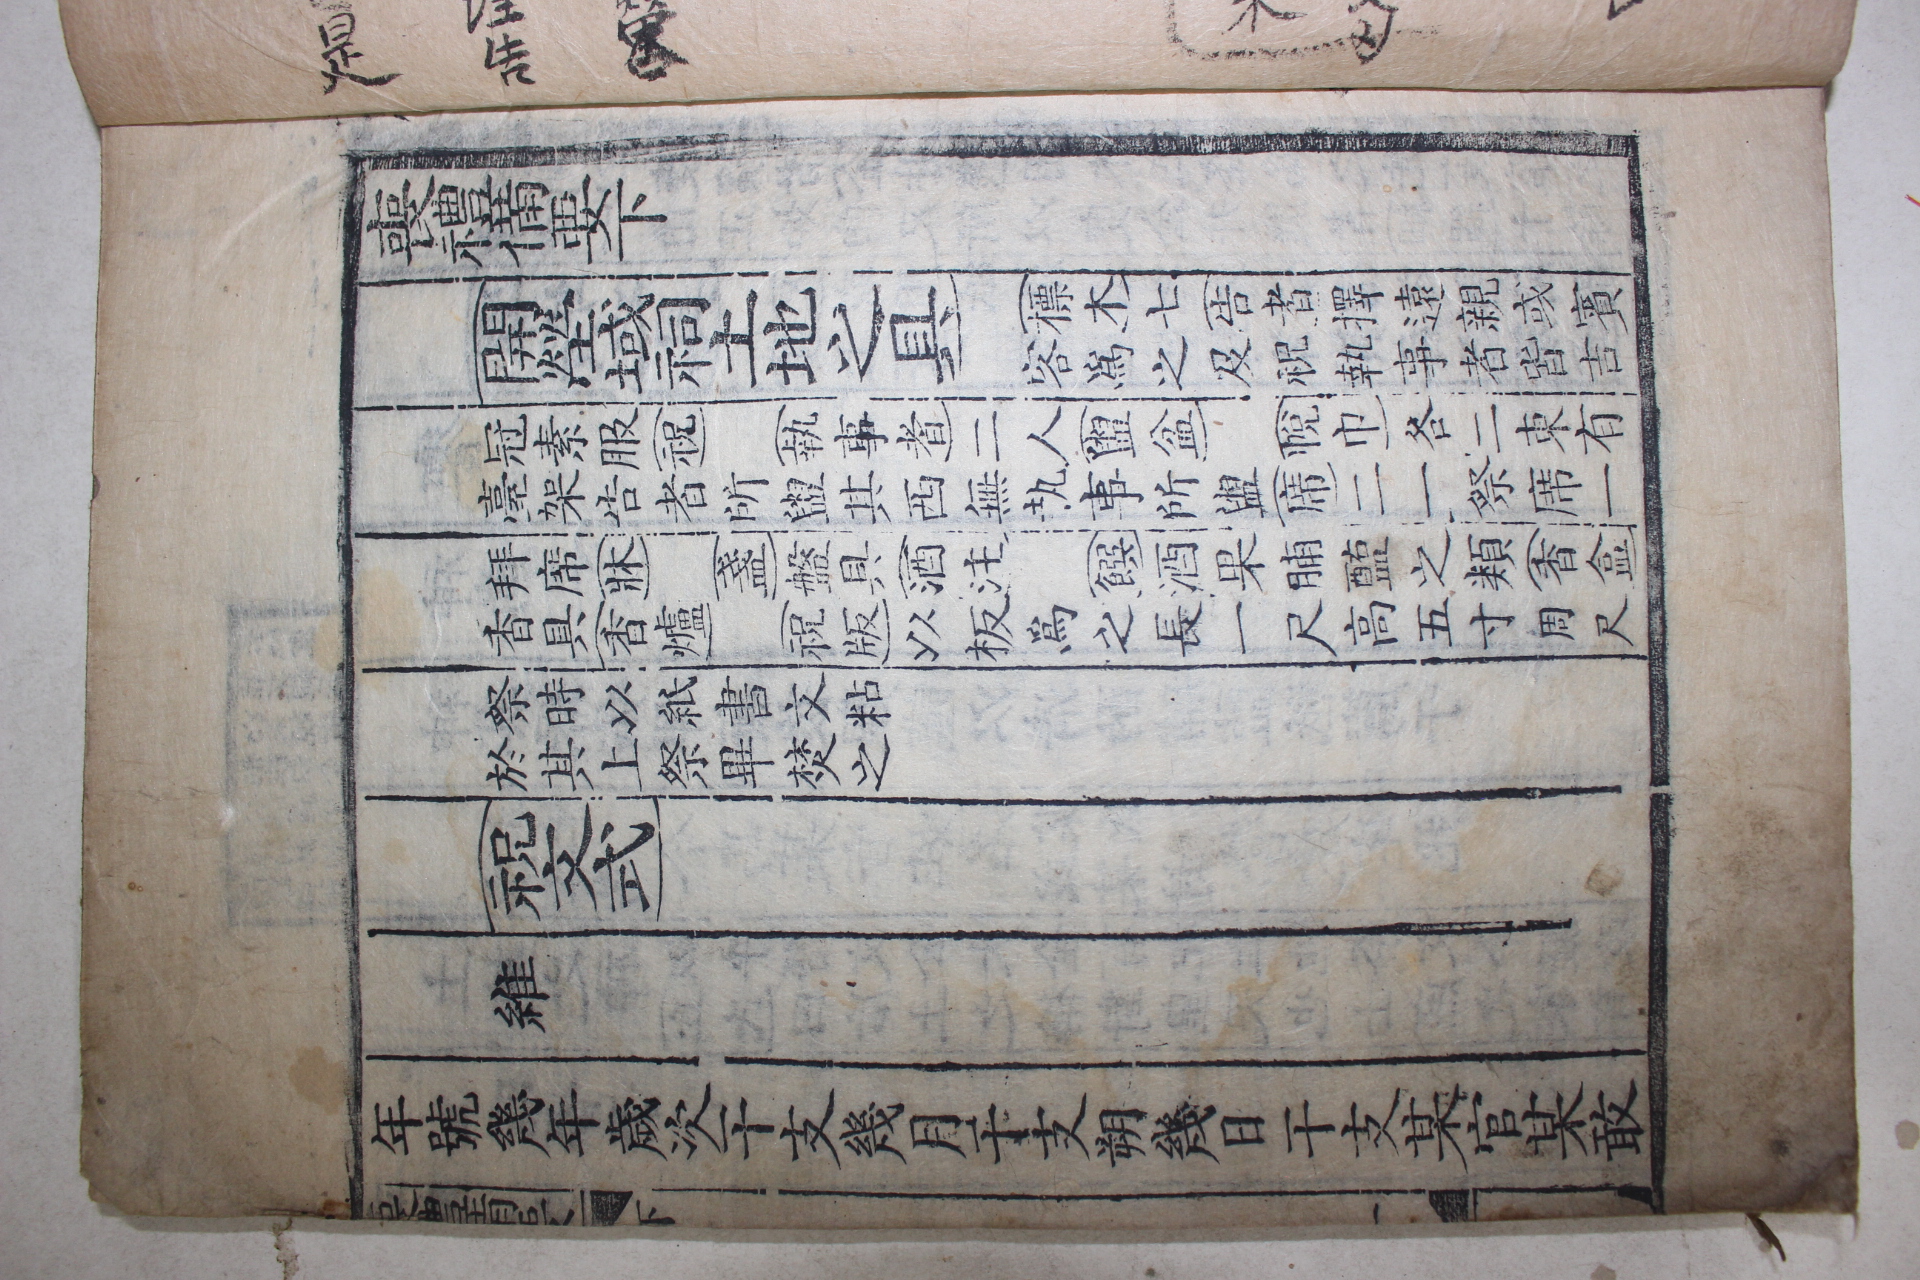 喪禮備要下
開塋域祠土地之具
標木七告者擇遠親或賓
客爲之及祝執事者皆吉
冠素服祝執事者二人盥盆帨巾各二東有
臺架告者所盥其西無執事所盥席二一祭席一
拜席牀盞盤具酒注饌酒果脯醢之類香盒
香具香爐祝版以板爲之長一尺高五寸周尺
祭時以紙書文粘
於其上祭畢焚之
祝文式
維
年號幾年歲次干支幾月干支朔幾日干支某官某敢
喪禮備要
下
一